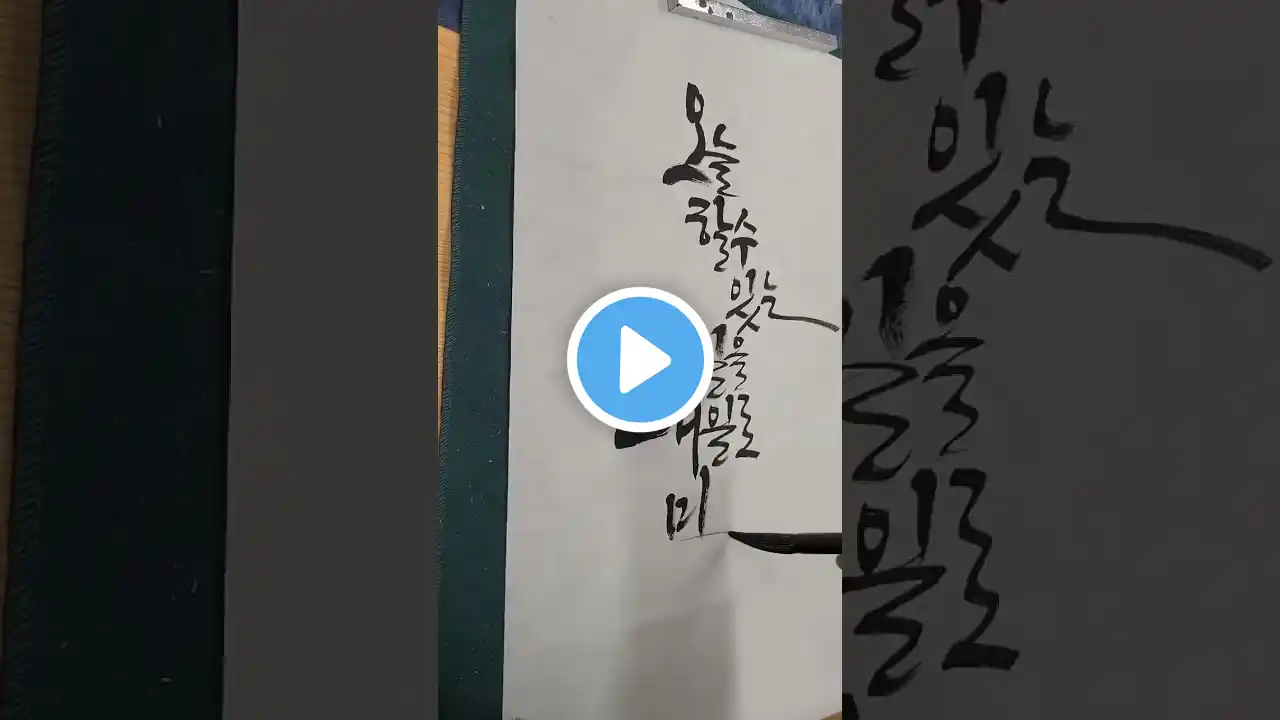 오늘
할수
있는
일을
내일로
미